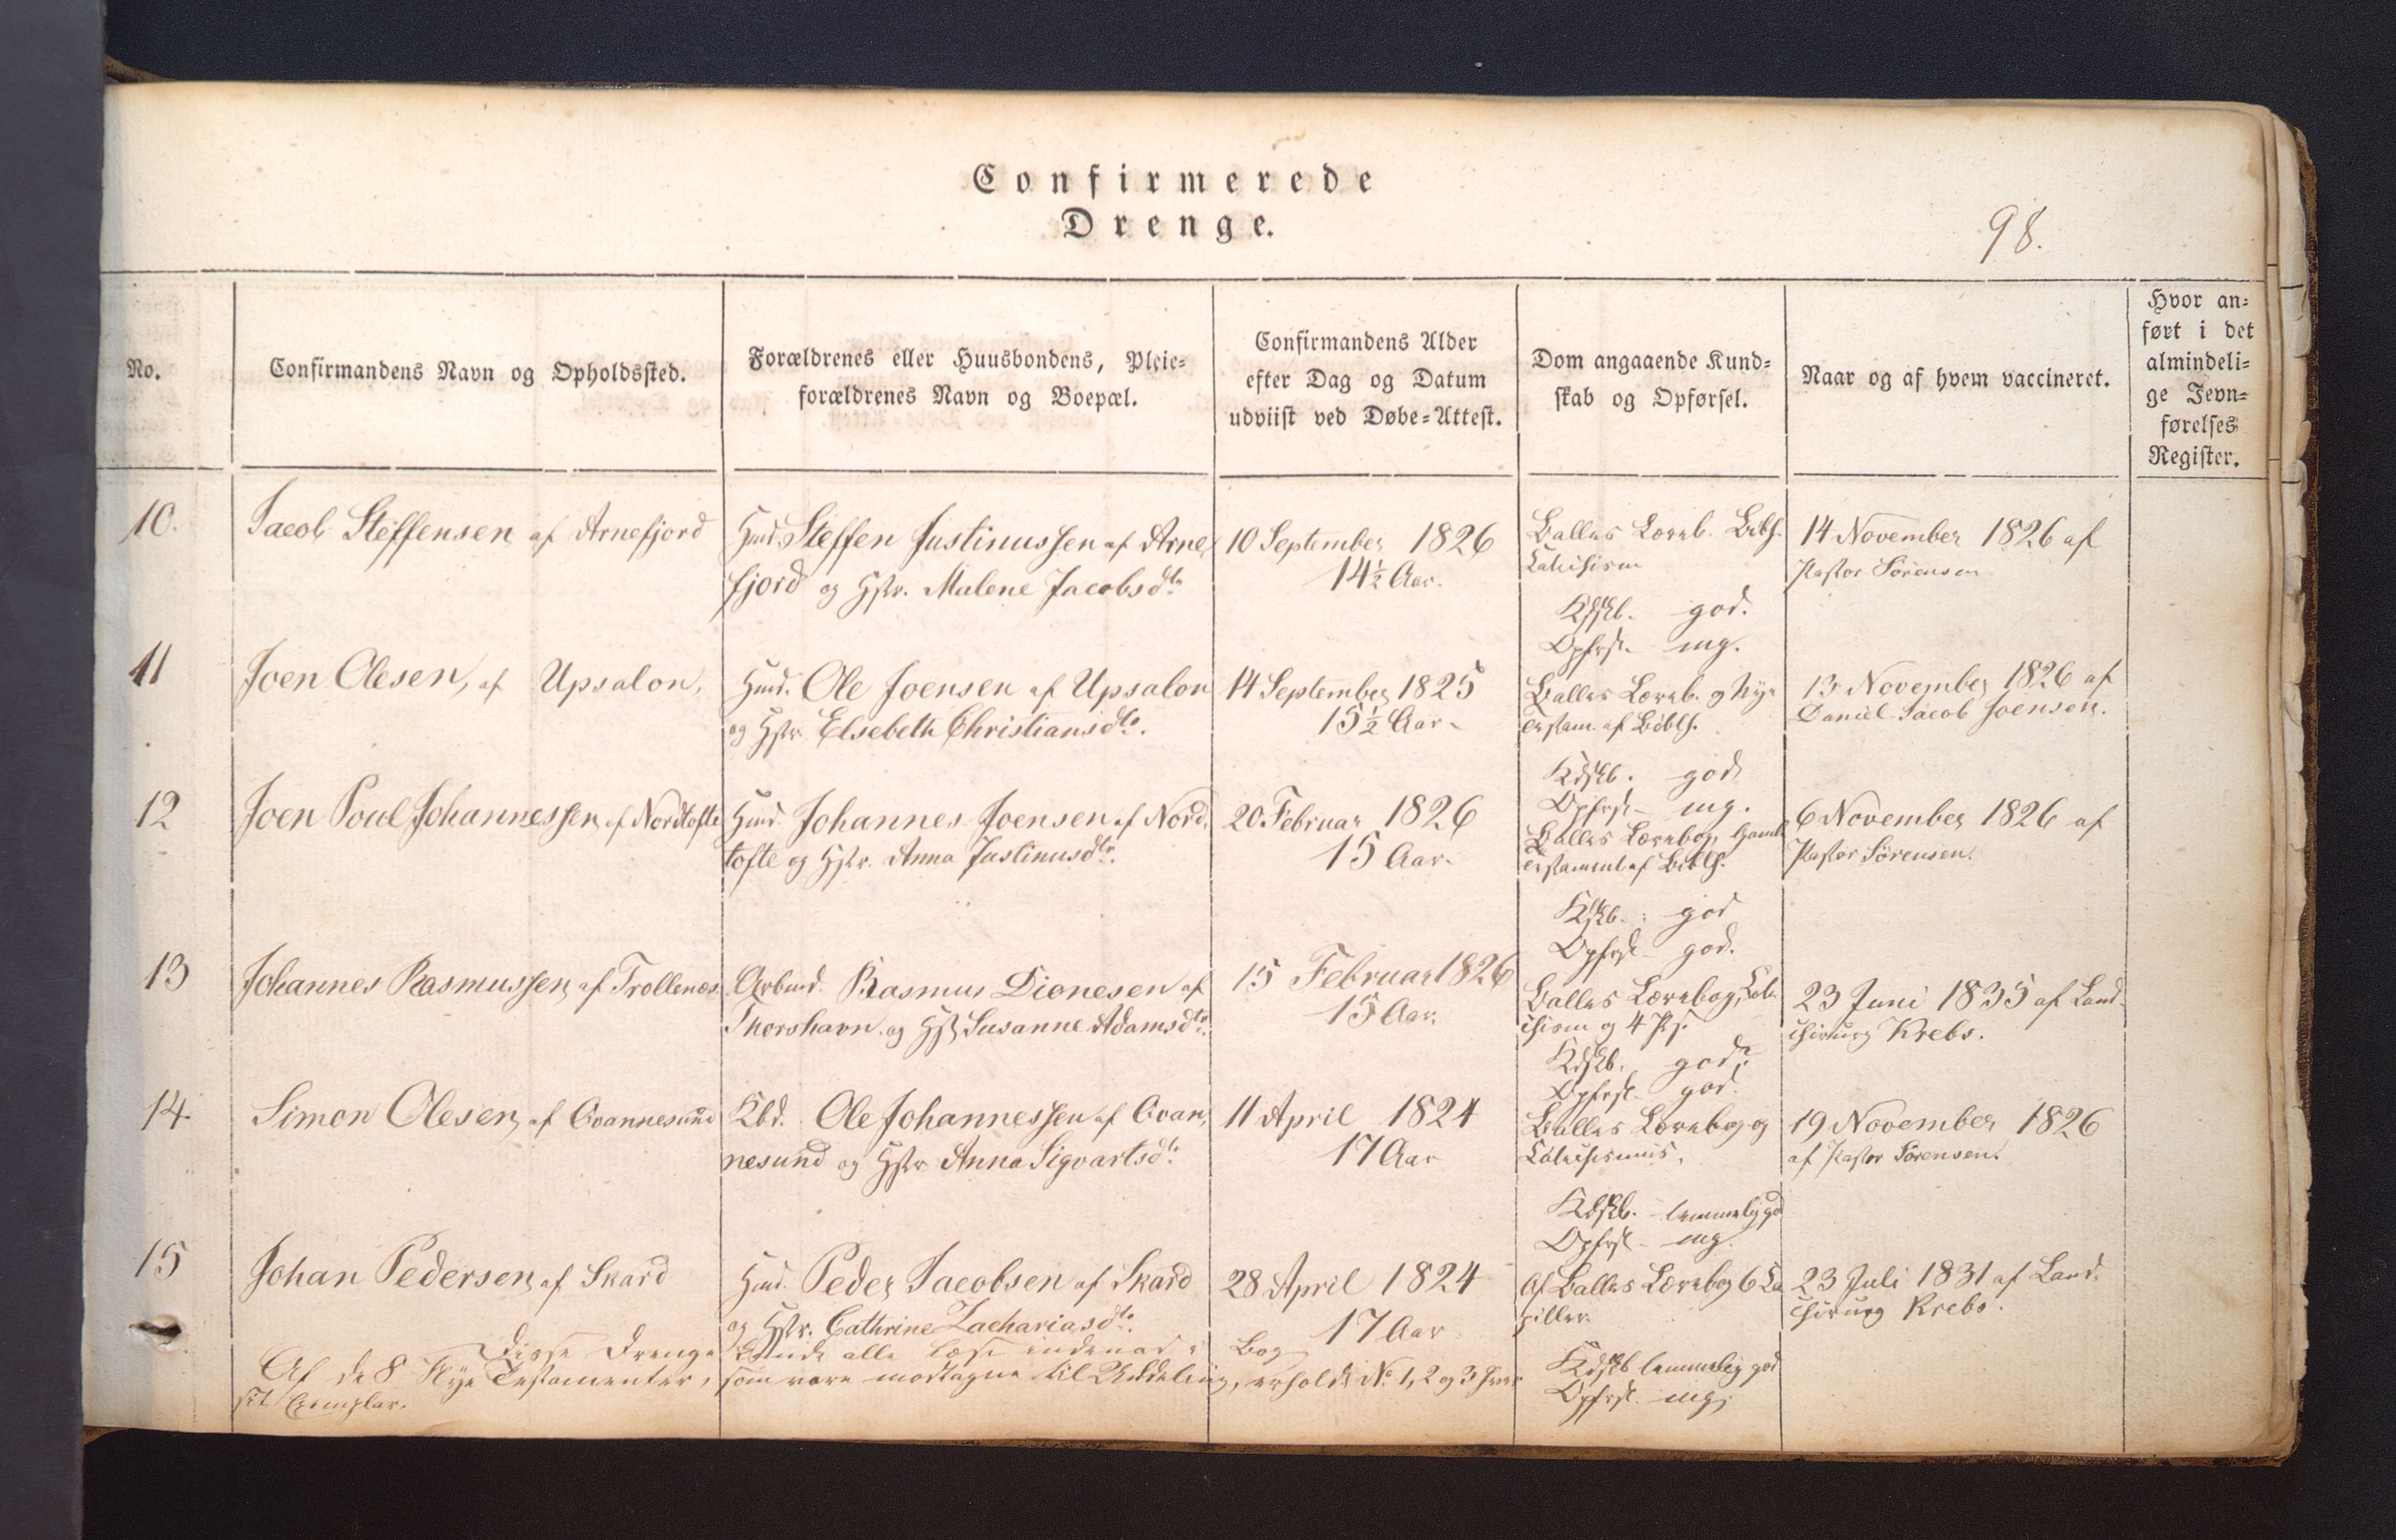 Confirmerede
Drenge.
98.
No.
Confirmandens Navn og Opholdssted.
Forældrenes eller Huusbondens, Pleie-
forældrenes Navn og Boepæl.
Confirmandens Alder
efter Dag og Datum
udviist ved Døbe-Attest.
Dom angaaende Kund-
skab og Opførsel.
Naar og af hvem vaccineret.
Hvor an-
ført i det
almindeli-
ge Jevn-
førelses
Register.
10.
Jacob Steffensen af Arnefjord
Hmd. Steffen Justinussen af Arne
fjord og Hstr. Malene Jacobsdtr
10 September 1826
14½ Aar.
Balles Læreb. Bibh.
Catechism
Kdskb. god.
Opfrsl. mg.
14 November 1826 af
Pastor Sørensen
11
Joen Olesen, af Upsalon,
Hmd. Ole Joensen af Upsalon
og Hstr. Elsebeth Christiansdtr.
14 September 1825
15½ Aar.
Balles Læreb. og Nye
Testam. af Biblh.
Kdskb. god
Opfrsl. mg.
13 November 1826 af
Daniel Jacob Joensen.
12
Joen Poul Johannessen af Nordtofte
Hmd. Johannes Joensen af Nord,
tofte og Hstr. Anna Justinusdtr.
20 Februar 1826
15 Aar.
Balles Lærebog, Gamle
Testament af Biblh.
Kdskb. god
Opfrsl. god.
6 November 1826 af
Pastor Sørensen.
13
Johannes Rasmussen af Trollenæs
Arbmd. Rasmus Dionesen af
Thorshavn og Hst Susanne Adamsdtr.
15 Februar 1826
15 Aar.
Balles Lærebog, Cate
chism og 4 Ps.
Kdskb. god?
Opfrsl. god.
23 Juni 1835 af Land-
chirurg Krebs.
14.
Simon Olesen af Qvannesund
Kbd. Ole Johannessen af Qvan,
nesund og Hstr Anna Sigvartsdtr
11 April 1824
17 Aar
Balles Lærebog og
Catechismus.
Kdskb. temmelig god
Opfrsl. mg.
19 November 1826
af Pastor Sørensen.
15
Johan Pedersen af Skard
Hmd. Peder Jacobsen af Skard
og Hstr. Cathrine Zachariasdtr.
28 April 1824
17 Aar
Af Balles Lærebog 6 Ca
pitler
Kdskb temmelig god
Opfrsl. mg.
23 Juli 1831 af Land.
chirurg Krebs.
Disse Drenge kunde alle læse indenad i Bog
Af de 8 Nye Testamenter, som vare modtagne til Uddeling, erholdt No. 1, 2 og 3 hver
sit Exemplar.